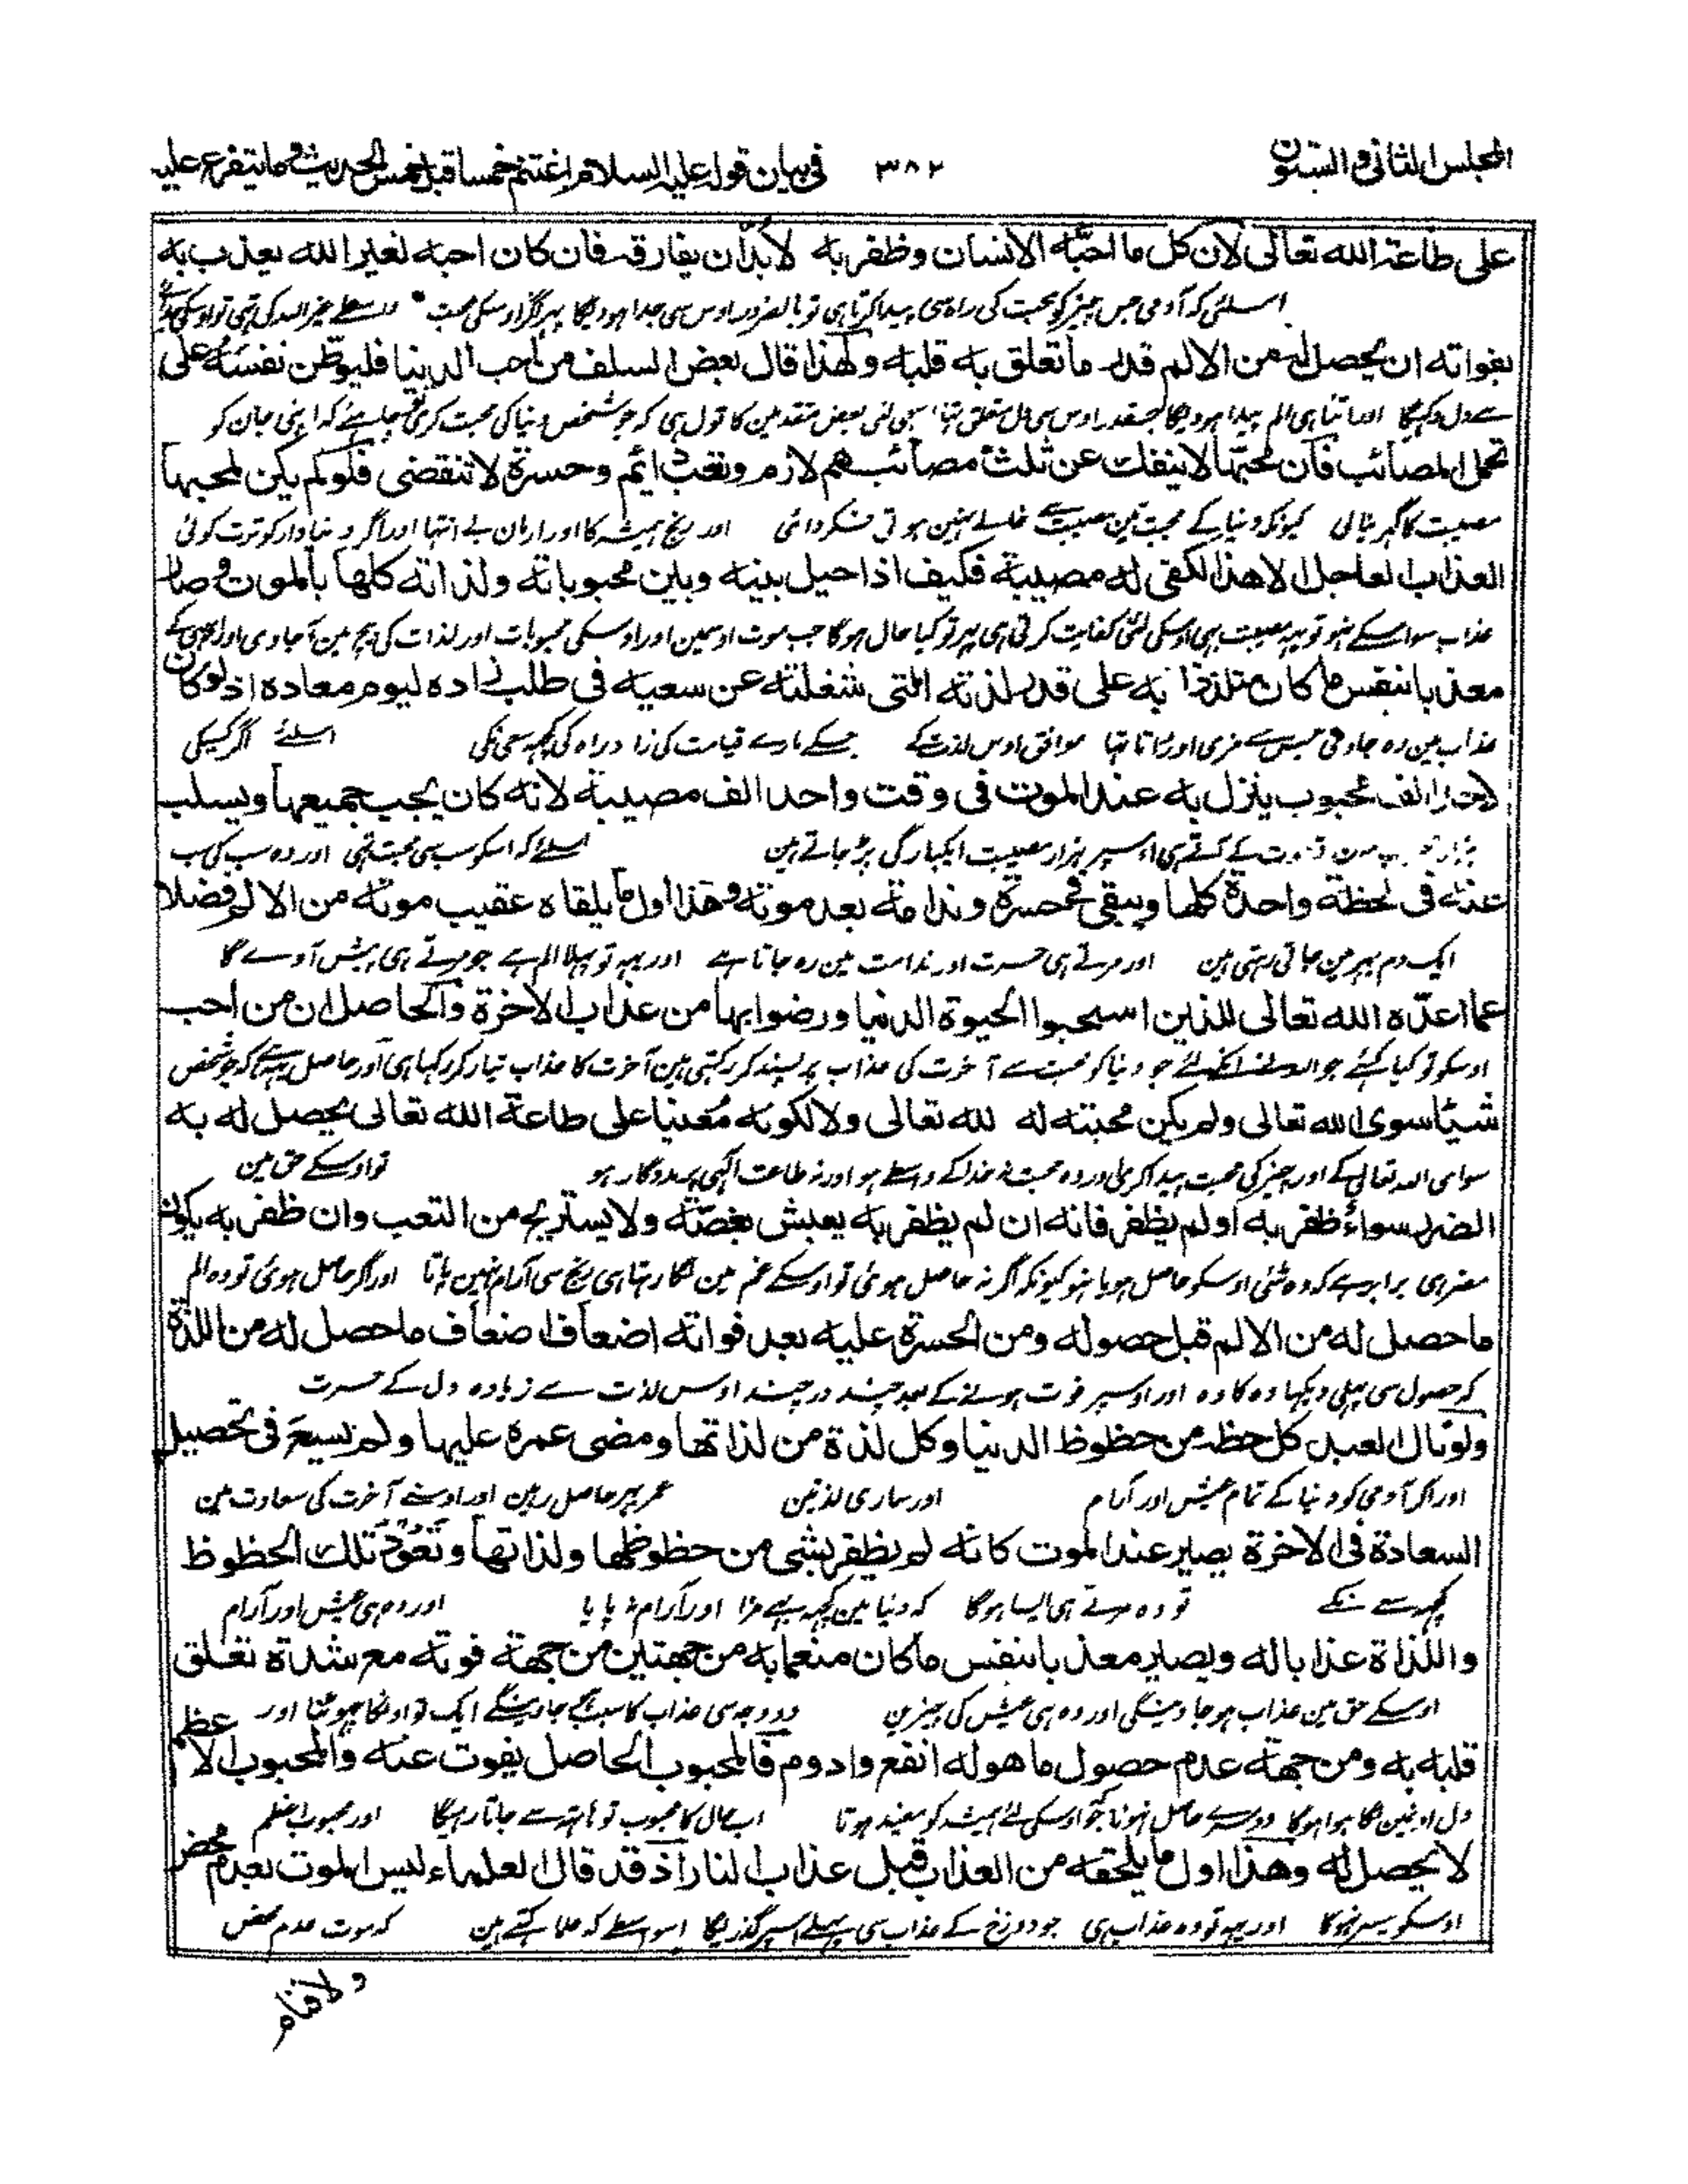 المجلس الثانی والستون ۳۸۲ فی بیان قوله علیه السلام اغتنم خمسا قبل خمس الحدیث وما یتفرع علیه
علی طاعة الله تعالی لان کل ما احبّه الانسان وظفر به لا بد ان یفارقه فان کان احبه لغیر الله یعذب به
اسلئی کہ آدمی جس چیز کو محبت کی راہ سی پیدا کرتا ہی تو بالضرور اوس سی جدا ہوویگا پہر اگر اوسکی محبت واسطے غیر اللہ کی تہی تو اوسکی
بفواته ان یحصل له من الالم قدر ما تعلق به قلبه ولهذا قال بعض السلف من احب الدنیا فلیوطن نفسه علی
سے دل دکہیگا اور اتنا ہی الم پیدا ہوویگا جسقدر اوس سی دل متعلق تہا سی لئی بعض متقدمین کا قول ہی کہ جو شخص دنیا کی محبت کری تو چاہئے کہ اپنی جان کو
تحمل المصائب فان محبتها لا ینفک عن ثلث مصائب هم لازم وتعب دائم وحسرة لا تنقضی فلو لم یکن لمحبها
مصیبت کا گہر بنالی کیونکہ دنیا کے محبت تین مصیبت سے خالے نہین ہوتی فکر دائمی اور رنج ہمیشہ کا اور ارمان بے انتہا اور اگر دنیا دار کو ترت کوئی
العذاب العاجل الا هذا لکفی له مصیبة فکیف اذا حیل بینه وبین محبوباته ولذاته کلها بالموت وصار
عذاب سوا اسکے نہو تو یہہ مصیبت ہی اوسکی لئی کفایت کرتی ہی پہر تو کیا حال ہوگا جب موت اوسمین اور اوسکی محبوبات اور لذات کی بیچ مین آجاوی اور
معذبا بنفس ما کان متلذذا به علی قدر لذته التی شغلته عن سعیه فی طلب زاده لیوم معاده اذ لو کان
عذاب مین رہ جاوی جس سے مزی اوراتا تہا موافق اوس لذت کے جسکے مارے قیامت کی زاد راہ کی کچہ سعی نکی اسلئے اگر کسیکی
لاحد الف محبوب ینزل به عند الموت فی وقت واحد الف مصیبة لانه کان یحب جمیعها ویسلب
ہزار موت کے آتے ہی اوسپر ہزار مصیبت ایکبارگی پڑ جاتے ہین اسلئے کہ اسکو سب سی محبت تہی اور وہ سب کی سب
عنه فی لحظة واحدة کلها ویبقی فی حسرة وندامة بعد موته وهذا اول ما یلقاه عقیب موته من الالم فضلا
ایک دم بہر مین جاتی رہتی ہین اور مرتے ہی حسرت اور ندامت مین رہ جاتا ہے اور یہہ تو پہلا الم ہے جو مرتے ہی پیش آوے گا
عما اعدّه الله تعالی للذین استحبوا الحیوة الدنیا ورضوا بها من عذاب الاخرة والحاصل ان من احب
اوسکو تو کیا کہئے جو اللہ نے انکے لئے جو دنیا کو محبت سے آخرت کی عذاب پر پسند کر رکہتی ہین آخرت کا عذاب تیار کر رکہا ہی اور حاصل یہہ ہے کہ جو شخص
شیئا سوی الله تعالی ولم یکن محبته له لله تعالی ولا لکونه مُعینا علی طاعة الله تعالی یحصل له به
سوای اللہ تعالی کے اور چیز کی محبت پیدا کر لی اور وہ محبت نہ خدا کے واسطے ہو اور نہ طاعت الہی پر مددگار ہو تو اوسکے حق مین
الضرر سواء ظفر به او لم یظفر فانه ان لم یظفر به یعیش بغصّته ولا یستریح من التعب وان ظفر به یکون
مضر ہی برابر ہے کہ وہ شئی اوسکو حاصل ہو یا نہو کیونکہ اگر نہ حاصل ہوئی تو اوسکے غم مین لگا رہتا ہی رنج سی آرام نہین پاتا اور اگر حاصل ہوئی تو وہ الم
ما حصل له من الالم قبل حصوله ومن الحسرة علیه بعد فواته اضعاف اضعاف ما حصل له من اللذة
کہ حصول سی پہلی دیکہا وہ کا وہ اور اوسپر فوت ہونے کے بعد چند در چند اوس لذت سے زیادہ دل کے حسرت
ولو نال العبد کل حظ من حظوظ الدنیا وکل لذة من لذاتها ومضی عمره علیها ولم یسع فی تحصیل
اور اگر آدمی کو دنیا کے تمام عیش اور آرام اور ساری لذتین عمر بہر حاصل رہین اور اوسنے آخرت کی سعادت مین
السعادة فی الاخرة یصیر عند الموت کانه لم یظفر بشی من حظوظها ولذاتها وتعود تلک الحظوظ
کچہ سے نکے تو وہ مرتے ہی ایسا ہوگا کہ دنیا مین کچہ بہے مزا اور آرام نہ پایا اور وہ ہی عیش اور آرام
واللذاة عذابا له ویصیر معذبا بنفس ما کان منعما به من جهتین من جهة فوته مع شدة تعلق
اوسکے حق مین عذاب ہو جاوینگی اور وہ ہی عیش کی چیزین دو وجہ سی عذاب کا سبب بن جاوینگے ایک تو اونکا چہوٹنا اور
قلبه به ومن جهة عدم حصول ما هو له انفع وادوم فالمحبوب الحاصل یفوت عنه والمحبوب الاعظم
دل اونمین لگا ہوا ہوگا دوسرے حاصل نہونا جو اوسکی لئے ہمیشہ کو مفید ہوتا اب حال کا محبوب تو ہاتہ سے جاتا رہیگا اور محبوب اعظم
لا یحصل له وهذا اول ما یلحقه من العذاب قبل عذاب النار اذ قد قال العلماء لیس الموت بعدم محض
اوسکو میسر نہوگا اور یہہ تو وہ عذاب ہی جو دوزخ کے عذاب سی پہلے اسپر گذریگا اسواسطے کہ علما کہتے ہین کہ موت عدم محض
ولا فناء